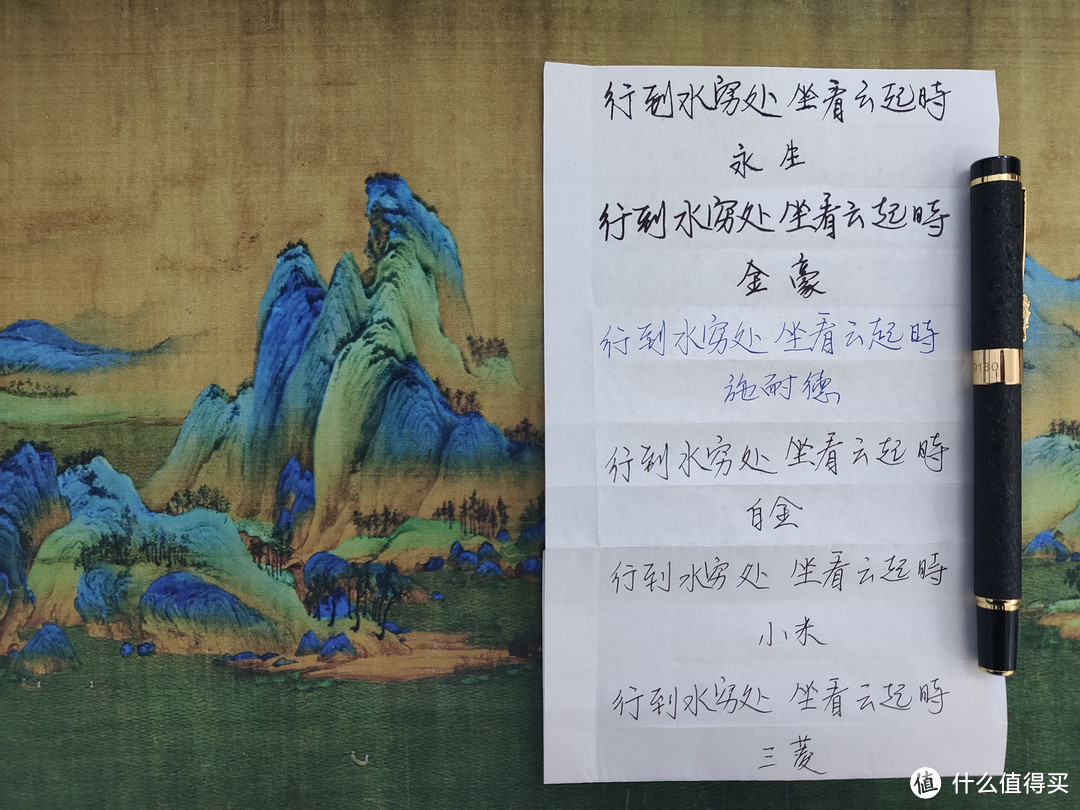 行到水穷处 坐看云起時
永生
行到水穷处 坐看云起時
金豪
行到水穷处 坐看云起時
施耐德
行到水穷处 坐看云起時
白金
行到水穷处 坐看云起時
小米
行到水穷处 坐看云起時
三菱
9180
值 什么值得买